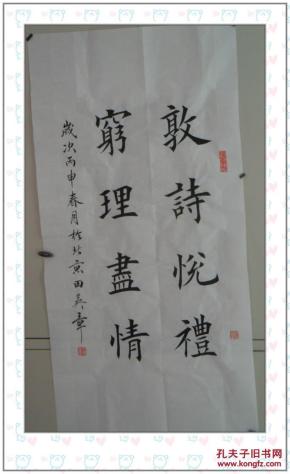 敦詩悅禮
窮理盡情
歲次丙申春月於北京田英章
孔夫子旧书网